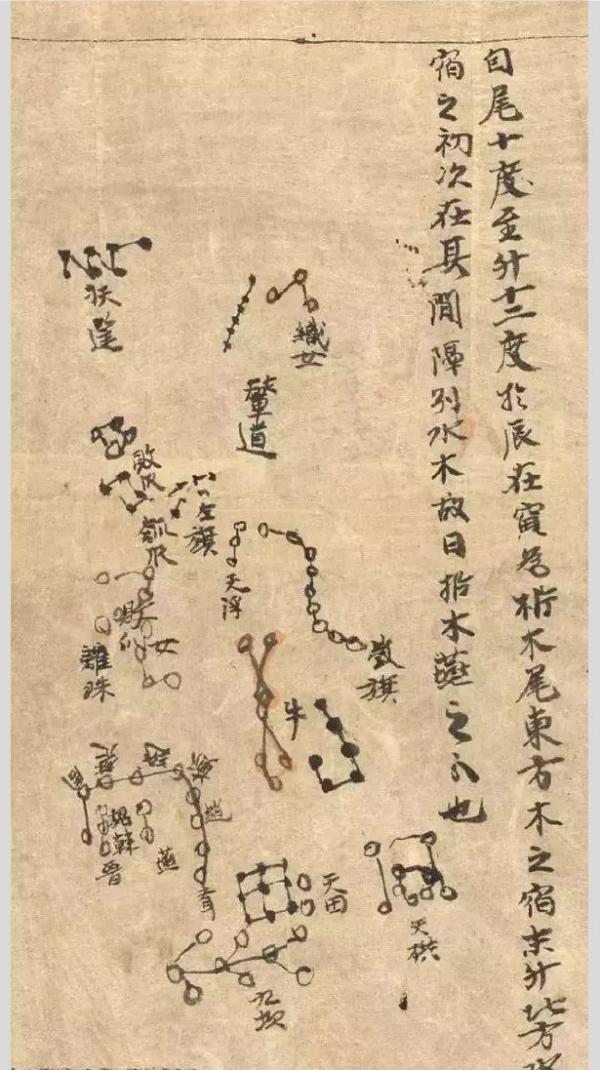 自尾十度至斗十二度於辰在寅為析木尾東方木之宿末斗北方水
宿之初次在其間隔別水木故曰析木燕之分也
織女
輦道
扶筐
敗瓜
瓠瓜
左旗
天浮
旗
女
離珠
牛
趙
魏
韓
晉
燕
天田
九坎
天